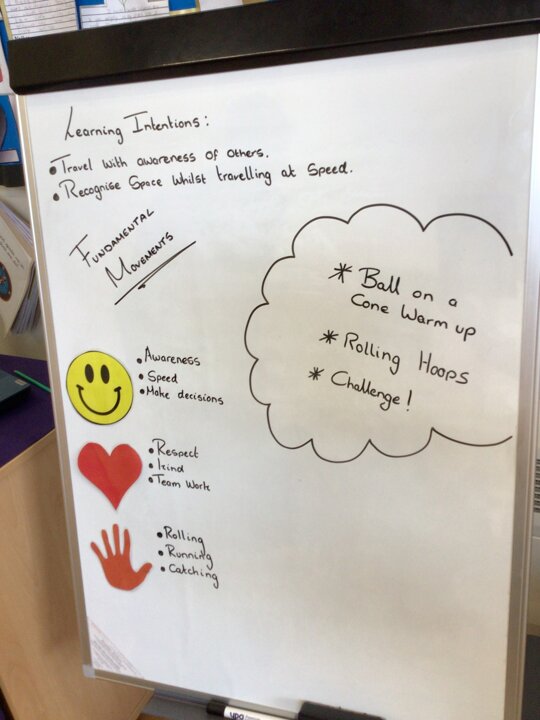 Learning Intentions:
• Travel with awareness of others.
• Recognise Space whilst travelling at Speed.
FUNDAMENTAL
MOVEMENTS
* Ball on a
Cone Warm up
* Rolling Hoops
* Challenge!
• Awareness
• Speed
• Make decisions
• Respect
• kind
• Team Work
• Rolling
• Running
• Catching